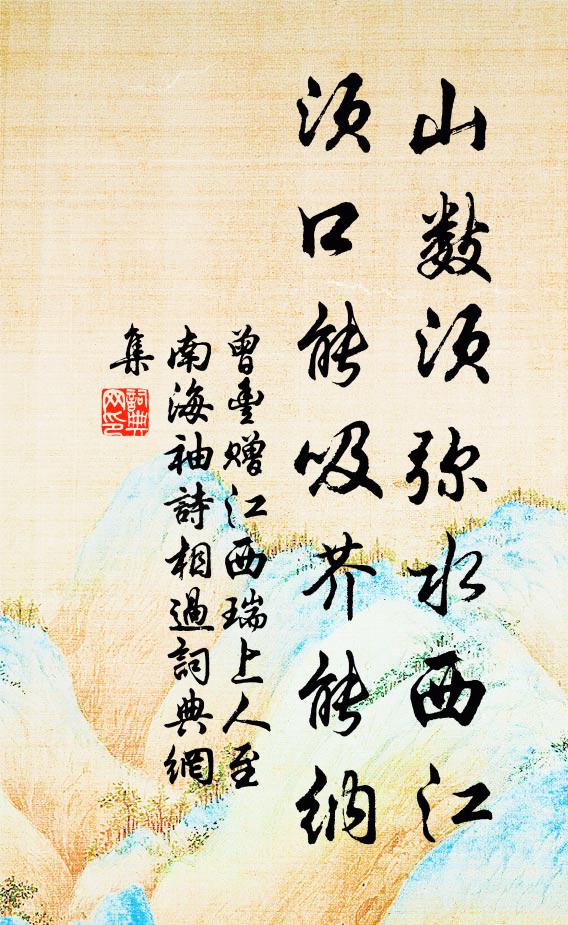 山数须弥水西江
须口能吸芥能纳
曾豊赠江西瑞上人至
南海袖詩相過詞典網
集
詞典
网印